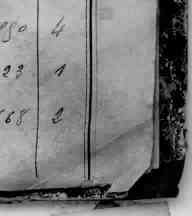 990 4
23 1
68 2